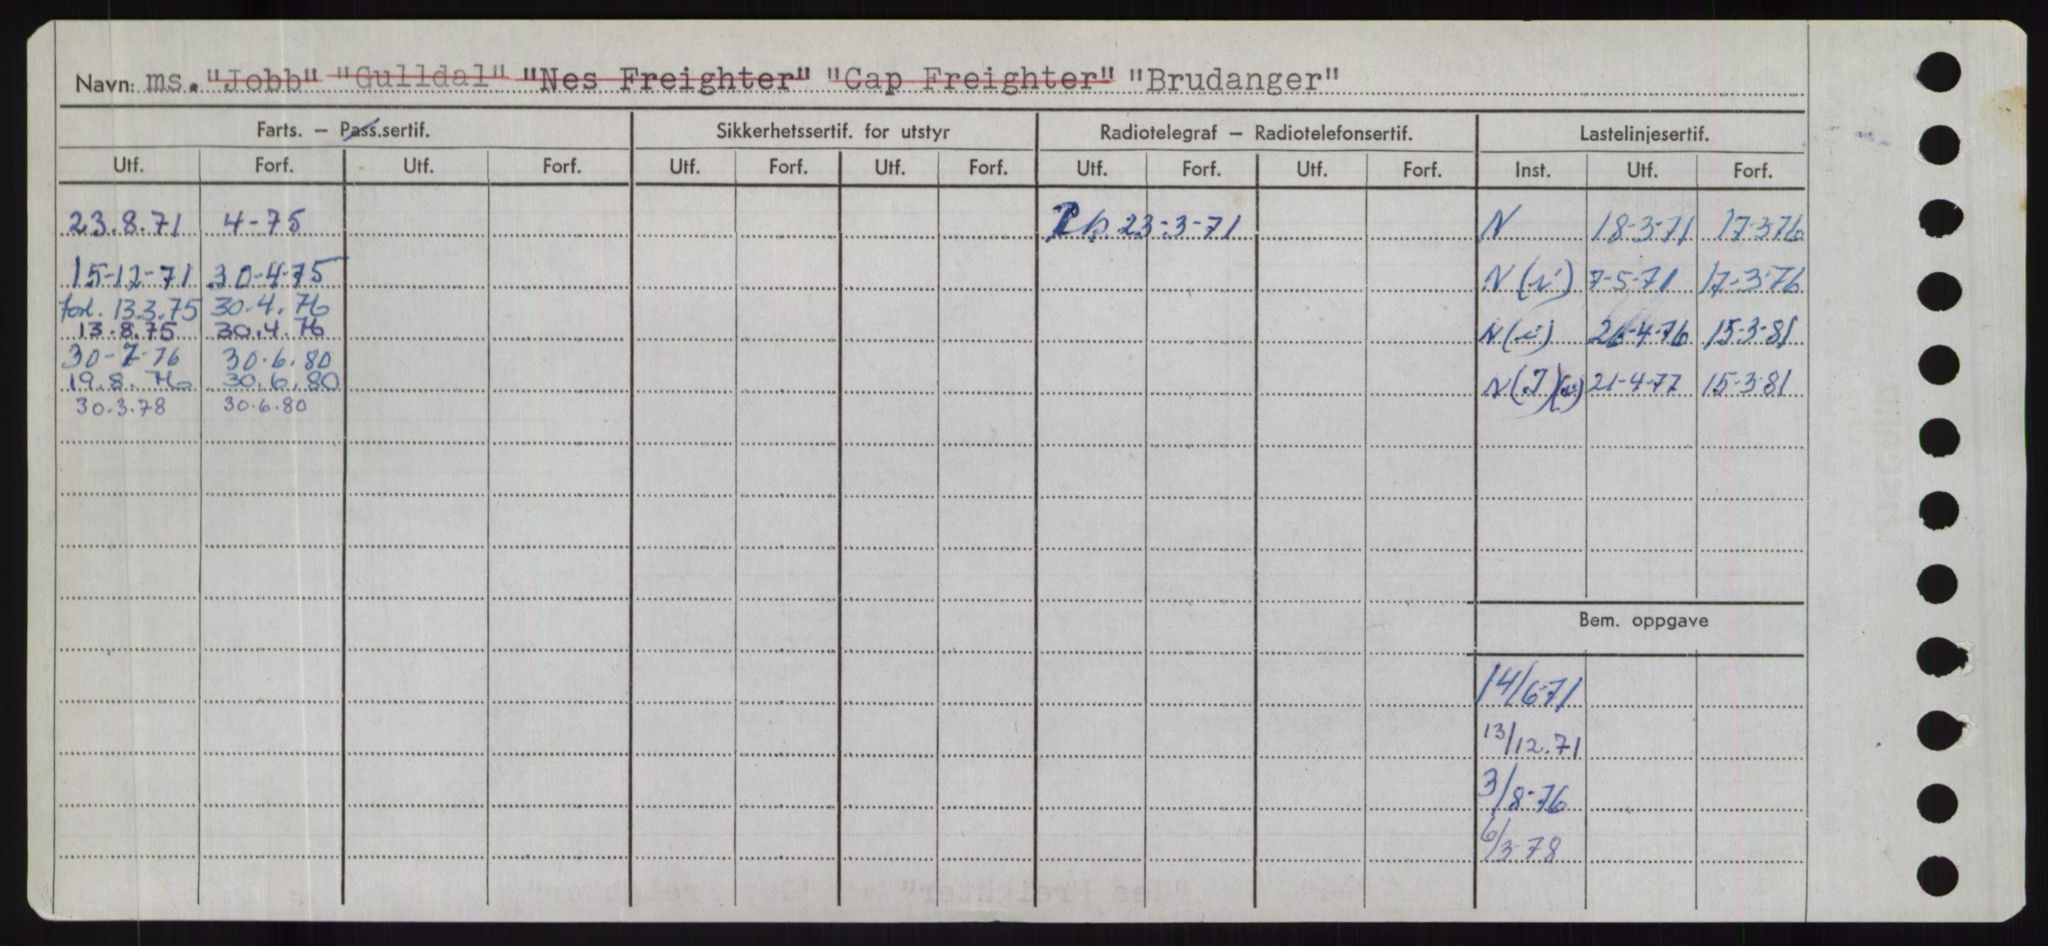 Navn: ms. "Jobb" "Gulldal" "Nes Freighter" "Cap Freighter" "Brudanger"
Farts. — Pass.sertif. Sikkerhetssertif. for utstyr Radiotelegraf — Radiotelefonsertif. Lastelinjesertif.
Utf. Forf. Utf. Forf. Utf. Forf. Utf. Forf. Utf. Forf. Utf. Forf. Inst. Utf. Forf.
23.8.71 4-75 23-3-71 N 18-3-71 17-3-76
15-12-71 30-4-75 N (u) 7-5-71 17-3-76
forl. 13.3.75 30.4.76
13.8.75 30.4.76 N (u) 26-4-76 15-3-81
30-7-76 30.6.80
19.8.76 30.6.80 N (J) (u) 21-4-77 15-3-81
30.3.78 30.6.80
Bem. oppgave
14/6-71
13/12.71
3/8-76
6/3-78